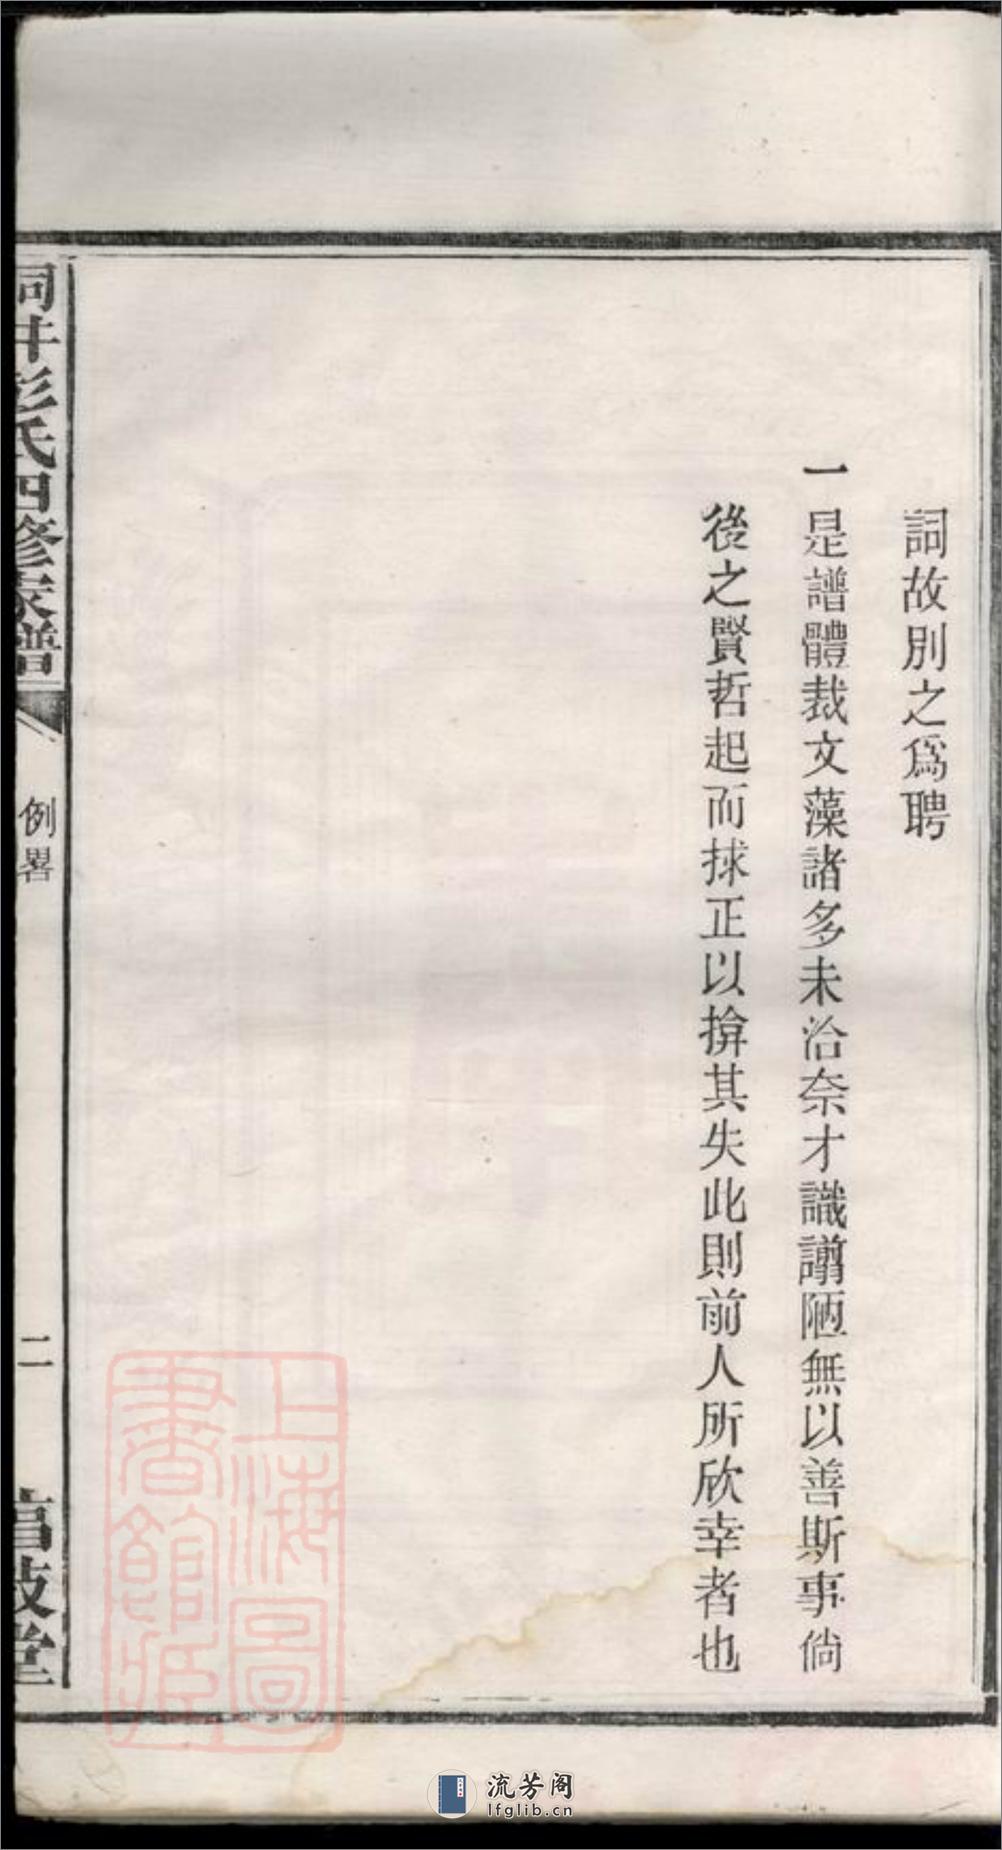 詞故別之爲聘
一是譜體裁文藻諸多未洽奈才識譾陋無以善斯事倘
後之賢哲起而捄正以揜其失此則前人所欣幸者也
井彭氏四修家譜
例畧
二
堂
上海圖
書館藏
流芳阁
lfglib.cn